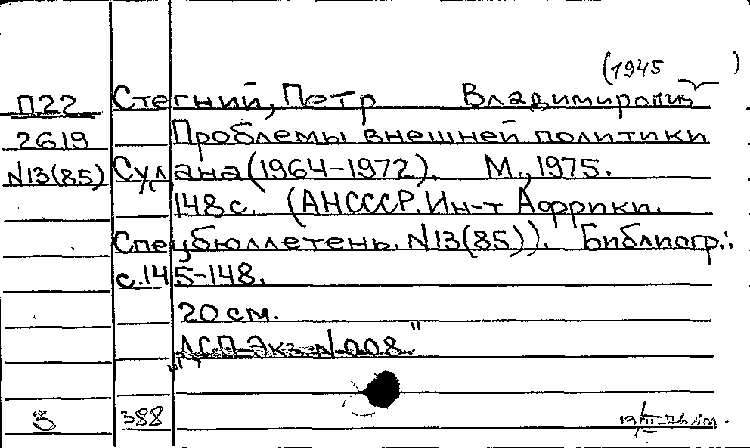 (1945 )
П22 Стегний, Петр Владимирович
2619 Проблемы внешней политики
N13(85) Судана (1964-1972). М., 1975.
148 с. (АН СССР. Ин-т Африки.
Спецбюллетень. N13(85)). Библиогр.:
с. 145-148.
20 см.
"ДСП-Экз. N 008."
3 388